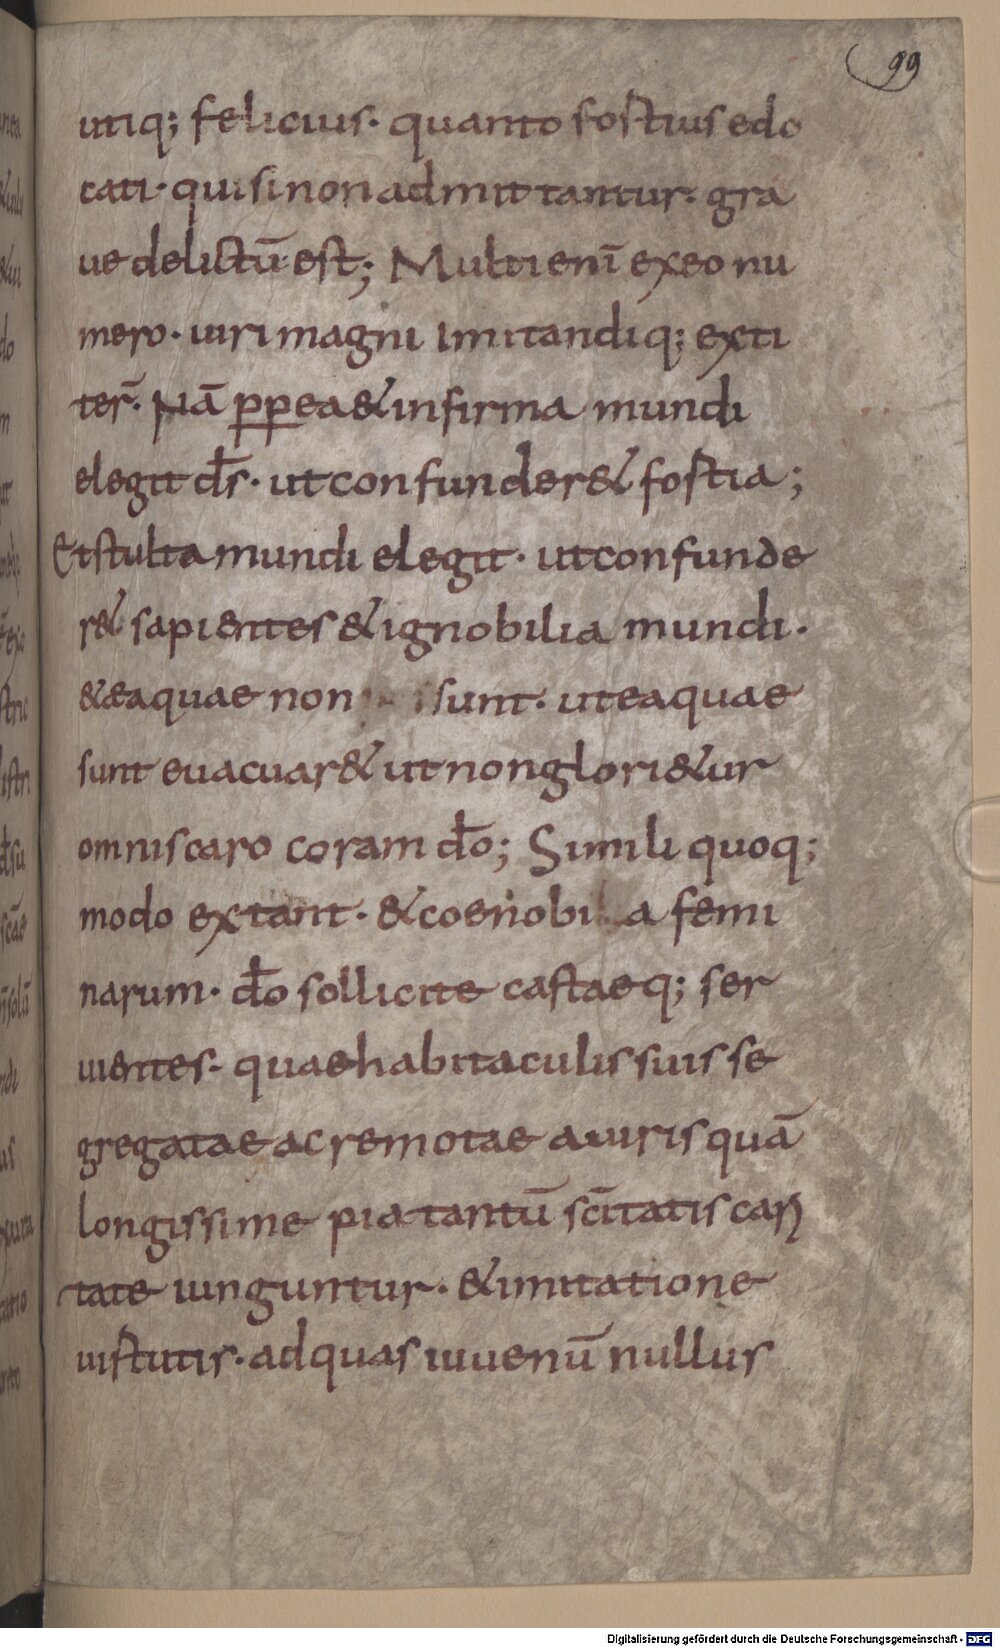 99
utiq; felicius· quanto fortius edo
cati· qui si non admittantur· gra
ue delictū est; Multi enī ex eo nu
mero· uiri magni imitandiq; exti
ter̄· Nā ꝓpea & infirma mundi
elegit d̄s· ut confunder& fortia;
Et stulta mundi elegit· ut confunde
r& sapientes & ignobilia mundi·
& ea quae non sunt· ut ea quae
sunt euacuar& ut non glori&ur
omnis caro coram d̄o; Simili quoq;
modo extant· & coenobia femi
narum· d̄o sollicite castaeq; ser
uientes· quae habitaculis suis se
gregatae ac remotae a uiris quā
longissime pia tantū sc̄itatis cari
tate iunguntur· & imitatione
uirtutis· ad quas iuuenū nullus
Digitalisierung gefördert durch die Deutsche Forschungsgemeinschaft - DFG